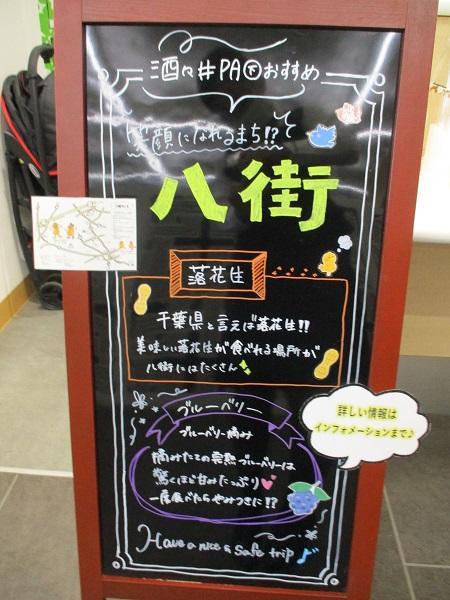 酒々井PA下おすすめ
笑顔になれるまち!?
八街
落花生
千葉県と言えば落花生!!
美味しい落花生が食べれる場所が
八街にはたくさん
詳しい情報は
インフォメーションまで♪
ブルーベリー
ブルーベリー摘み
摘みたての完熟ブルーベリーは
驚くほど甘みたっぷり
一度食べたらやみつきに!?
Have a nice & safe trip